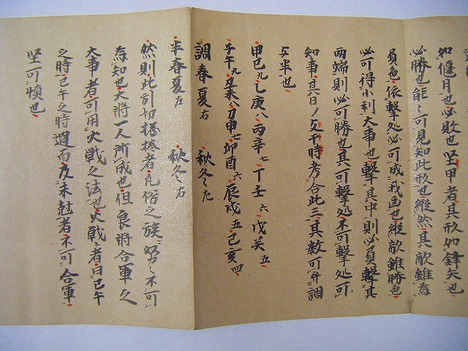 如偃月也必敗也坚甲者其形如鋒矢也
必勝也能々可見知此形也縦然其敵雖為
負色依撃処必可成我凶也縦敵雖勝色
必可得小利大事也撃其中則必負撃其
両端則必可勝也其可撃処不可撃処可
知事其日ノ与時考合此三其数可計調
与半也
甲己九乙庚八丙辛七丁壬六戊癸五
子午九丑未八寅申七卯酉六辰戌五巳亥四
調春夏右 秋冬左
半春夏左 秋冬右
然則此引却 者凡俗之族努々不可
為知也大将一人所成也但良将合軍之
大事者可用火戦之法也火戦者自巳午
之時巳午之時過而及未刻者不可合軍
坚可慎也